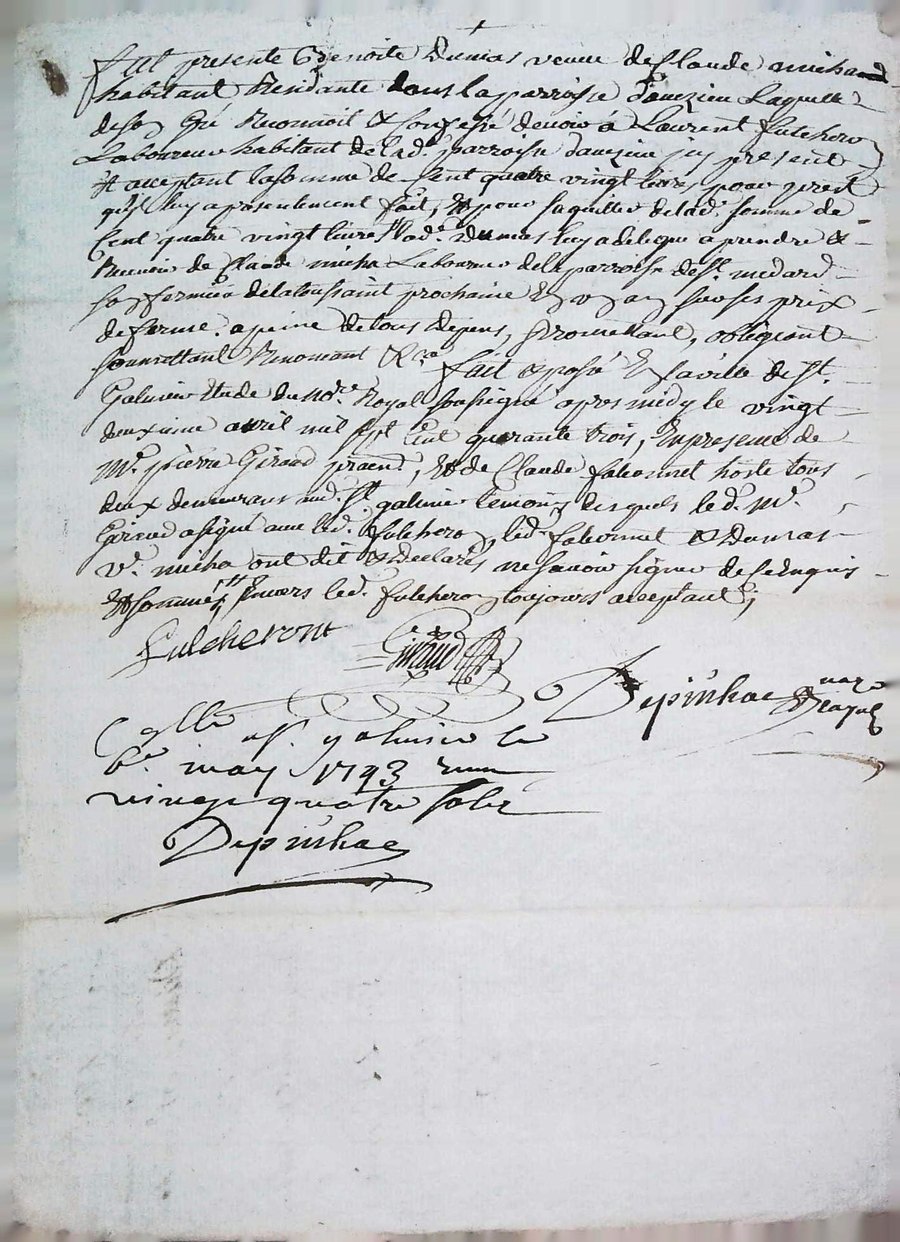 +
fut presente Benoite Dumas veuve de Claude micha
habitant Residante dans la parroisse d'aveizieu Laquelle
de so gré Reconnoit & confessé devoir a Laurent fulchero
Laboureur habitant de lad.e parroisse d'aveizieu icy present
& acceptant la somme de Cent quatre vingt livres pour prest
qu'il luy a présentement fait, & pour saquitter de lad.e somme de
Cent quatre vingt livres lad.e Dumas luy a delegué a prendre &
Recevoir de Claude micha Laboureur de la parroisse de St. medard
so fermier de la toussaint prochaine En un an sur ses prix
de ferme. a peine de tous dépens, promettant, obligeant
soumettant Renonçant & c.a fait & passé En la ville de St.
Galmier Etude du no.re Royal soussigné apres midy le vingt
deuxieme avril mil sept Cent quarante trois, En presence de
M.e pierre Giraud , & de Claude faleonnet hoste tous
deux demeurans aud. St. galmier temoins desquels led. M.e
Giraud a signé avec led. fulchero, led. faleonnet & Dumas
v.e micha ont dit & declarés ne savoir signer de ce Enquis
& sommés Envers led. fulchero toujours acceptant;
fulcheront Giraud
Depinhac no.re Royal
Con.llé a St. galmier le
6.e may 1743 recu
vingt quatre sols
Depinhac